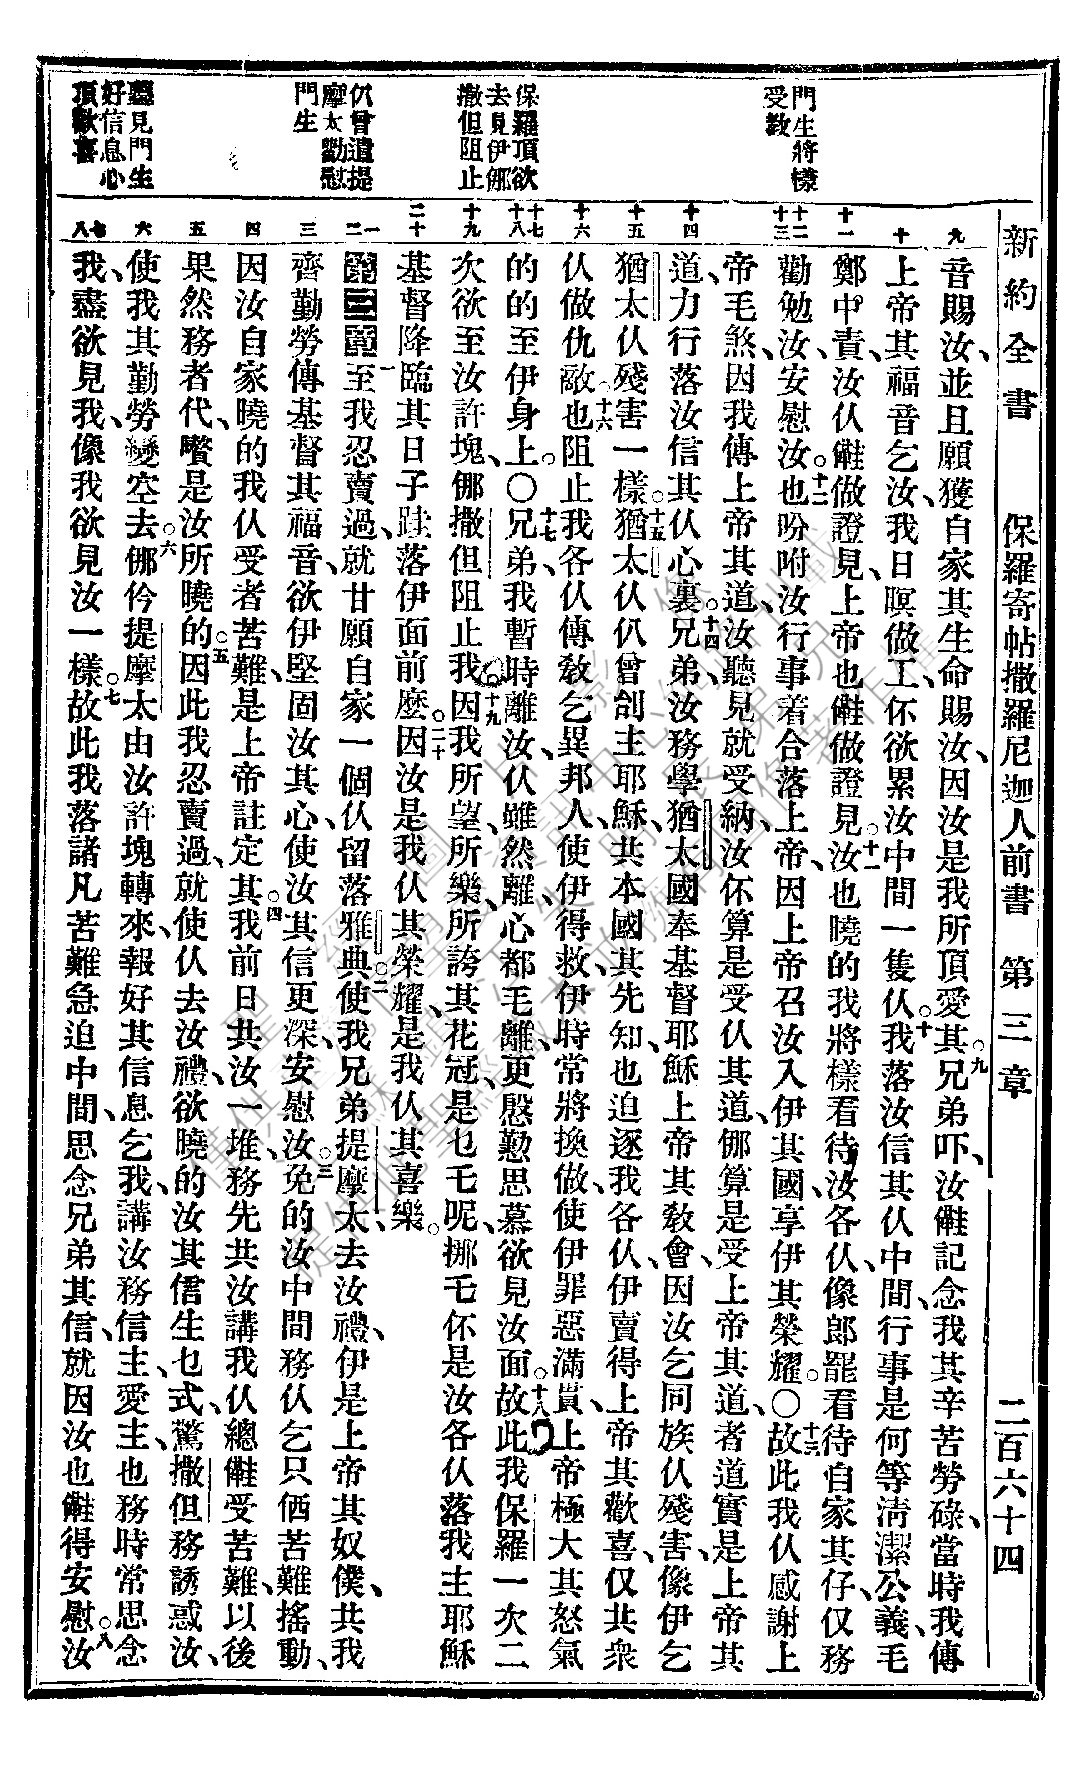 新約全書 保羅寄帖撒羅尼迦人前書 第三章 二百六十四
門生將樣受敎
保羅頂欲去見伊㑚撒但阻止
仍曾遣提摩太勸慰門生
聽見門生好信息心頂歡喜
九 音賜汝、並且願獲自家其生命賜汝、因汝是我所頂愛其。九兄弟吓、汝㒰記念我其辛苦勞碌、當時我傳
十 上帝其福音乞汝、我日暝做工、伓欲累汝中間一隻仈。十我落汝信其仈中間、行事是何等淸潔公義毛
十一 鄭中責、汝仈㒰做證見、上帝也㒰做證見。十一汝也曉的我將樣看待汝各仈、像郎罷看待自家其仔、仅務
十二 十三 勸勉汝、安慰汝。十二也吩咐汝行事着合落上帝、因上帝召汝入伊其國、享伊其榮耀。〇十三故此我仈感謝上
帝毛煞、因我傳上帝其道、汝聽見就受納、汝伓算是受仈其道、㑚算是受上帝其道、者道實是上帝其
十四 道、力行落汝信其仈心裏。十四兄弟、汝務學猶太國奉基督耶穌上帝其敎會、因汝乞同族仈殘害、像伊乞
十五 猶太仈殘害一樣。十五猶太仈仍曾刣主耶穌、共本國其先知、也迫逐我各仈、伊賣得上帝其歡喜、仅共衆
十六 仈做仇敵。十六也阻止我各仈傳敎乞異邦人、使伊得救、伊時常將換做、使伊罪惡滿貫、上帝極大其怒氣
十七 十八 的的至伊身上。〇十七兄弟、我暫時離汝、仈雖然離、心都毛離、更殷懃思慕欲見汝面。十八故此我保羅一次二
十九 次欲至汝許塊、㑚撒但阻止我。十九因我所望、所樂、所誇其花冠、是乜乇呢、挪乇伓是汝各仈落我主耶穌
二十 基督降臨其日子、跬落伊面前麽。二十因汝是我仈其榮耀、是我仈其喜樂。
一 二 第三章 一至我忍賣過、就甘願自家一個仈留落雅典。二使我兄弟提摩太去汝禮、伊是上帝其奴僕、共我
三 齊勤勞傳基督其福音、欲伊堅固汝其心、使汝其信更深、安慰汝。三免的汝中間務仈乞只㑉苦難搖動、
四 因汝自家曉的我仈受者苦難、是上帝註定其。四我前日共汝一堆、務先共汝講、我仈總㒰受苦難、以後
五 果然務者代、嚽是汝所曉的。五因此我忍賣過、就使仈去汝禮、欲曉的汝其信生乜式、驚撒但務誘惑汝、
六 使我其勤勞變空去。六㑚伶提摩太由汝許塊轉來、報好其信息乞我、講汝務信主、愛主、也務時常思念
七 八 我、盡欲見我、像我欲見汝一樣。七故此我落諸凡苦難急迫中間、思念兄弟其信、就因汝也㒰得安慰。八汝